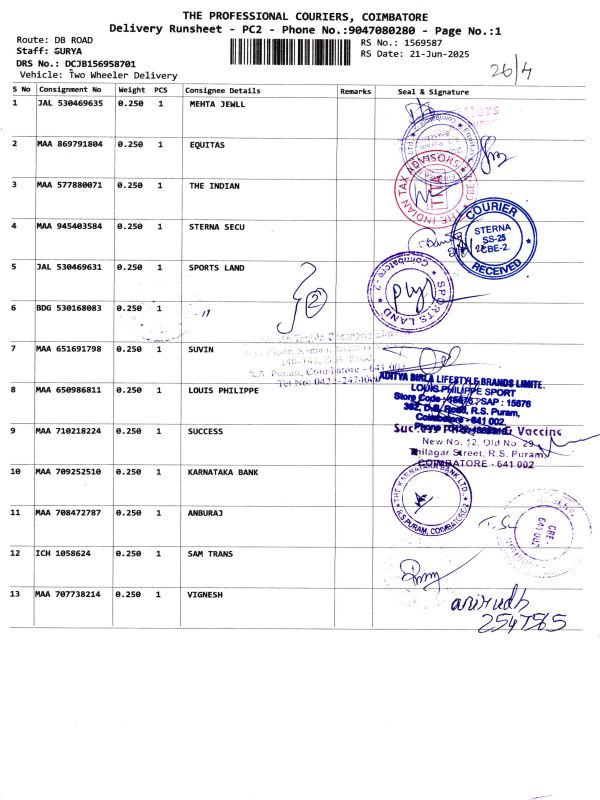 THE PROFESSIONAL COURIERS, COIMBATORE
Delivery Runsheet - PC2 - Phone No.:9047080280 - Page No.:1
Route: DB ROAD
Staff: SURYA
DRS No.: DCJB156958701
Vehicle: Two Wheeler Delivery
RS No.: 1569587
RS Date: 21-Jun-2025
26/4
S No Consignment No Weight PCS Consignee Details Remarks Seal & Signature
1 JAL 530469635 0.250 1 MEHTA JEWLL
2 MAA 869791804 0.250 1 EQUITAS
3 MAA 577880071 0.250 1 THE INDIAN
THE INDIAN TAX ADVISORS
4 MAA 945403584 0.250 1 STERNA SECU
COURIER
STERNA
SS-25
CBE-2.
RECEIVED
5 JAL 530469631 0.250 1 SPORTS LAND
SPORTS LAND
Coimbatore - 2
6 BDG 530168083 0.250 1 - 11
2
R.S. Puram, Coimbatore - 641 002
7 MAA 651691798 0.250 1 SUVIN
8 MAA 650986811 0.250 1 LOUIS PHILIPPE
ADITYA BIRLA LIFESTYLE BRANDS LIMITE.
LOUIS PHILIPPE SPORT
Store Code : 15676, SAP : 15676
362, D.B. Road, R.S. Puram,
Coimbatore - 641 002
9 MAA 710218224 0.250 1 SUCCESS
Success & Vaccine
New No. 12, Old No. 29
Thilagar Street, R.S. Puram
COIMBATORE - 641 002
10 MAA 709252510 0.250 1 KARNATAKA BANK
THE KARNATAKA BANK LTD.
R.S PURAM, COIMBATORE-2
11 MAA 708472787 0.250 1 ANBURAJ
CBE.
641 002
12 ICH 1058624 0.250 1 SAM TRANS
13 MAA 707738214 0.250 1 VIGNESH
anirudh
254785